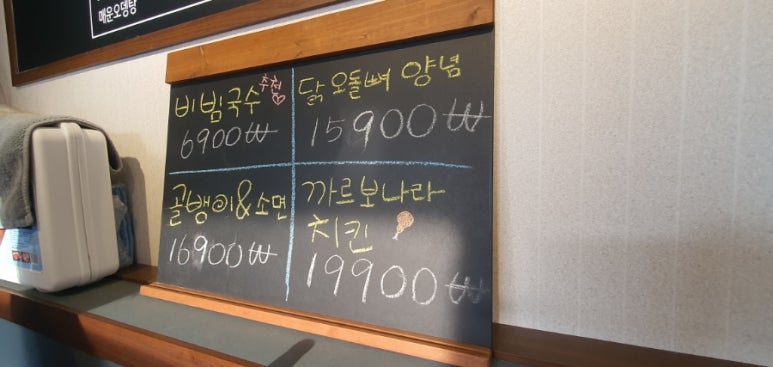 매운오뎅탕
비빔국수 추천
6900₩
닭오돌뼈 양념
15900₩
골뱅이&소면
16900₩
까르보나라
치킨
19900₩